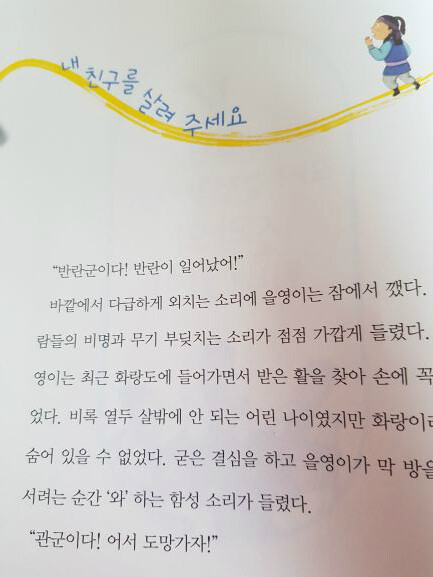 내 친구를 살려 주세요
“반란군이다! 반란이 일어났어!”
바깥에서 다급하게 외치는 소리에 을영이는 잠에서 깼다.
람들의 비명과 무기 부딪치는 소리가 점점 가깝게 들렸다.
영이는 최근 화랑도에 들어가면서 받은 활을 찾아 손에 꼭
었다. 비록 열두 살밖에 안 되는 어린 나이였지만 화랑이
숨어 있을 수 없었다. 굳은 결심을 하고 을영이가 막 방을
서려는 순간 ‘와’ 하는 함성 소리가 들렸다.
“관군이다! 어서 도망가자!”